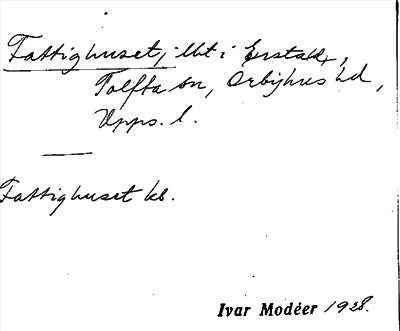 Fattighuset, lht i Erstakt,
Tolfta sn, Örbyhus hd,
Upps. l.
Fattighuset kb.
Ivar Modéer 1928.